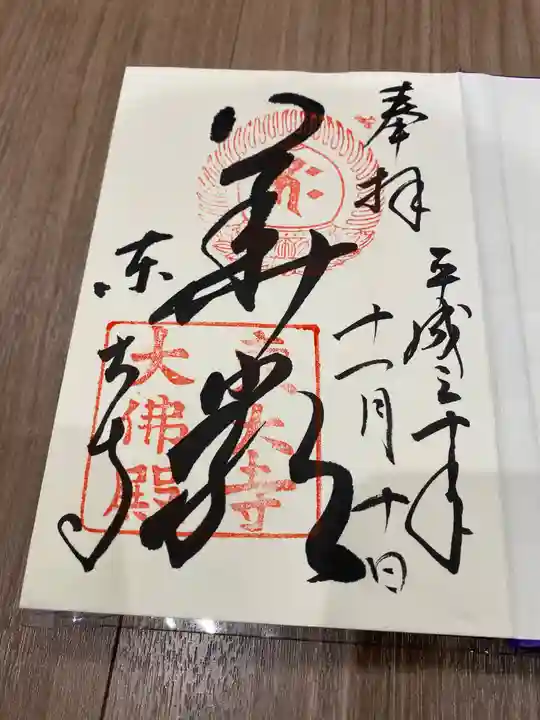 奉拝
平成三十年
十一月十日
華厳
東大寺
東大寺
大佛殿